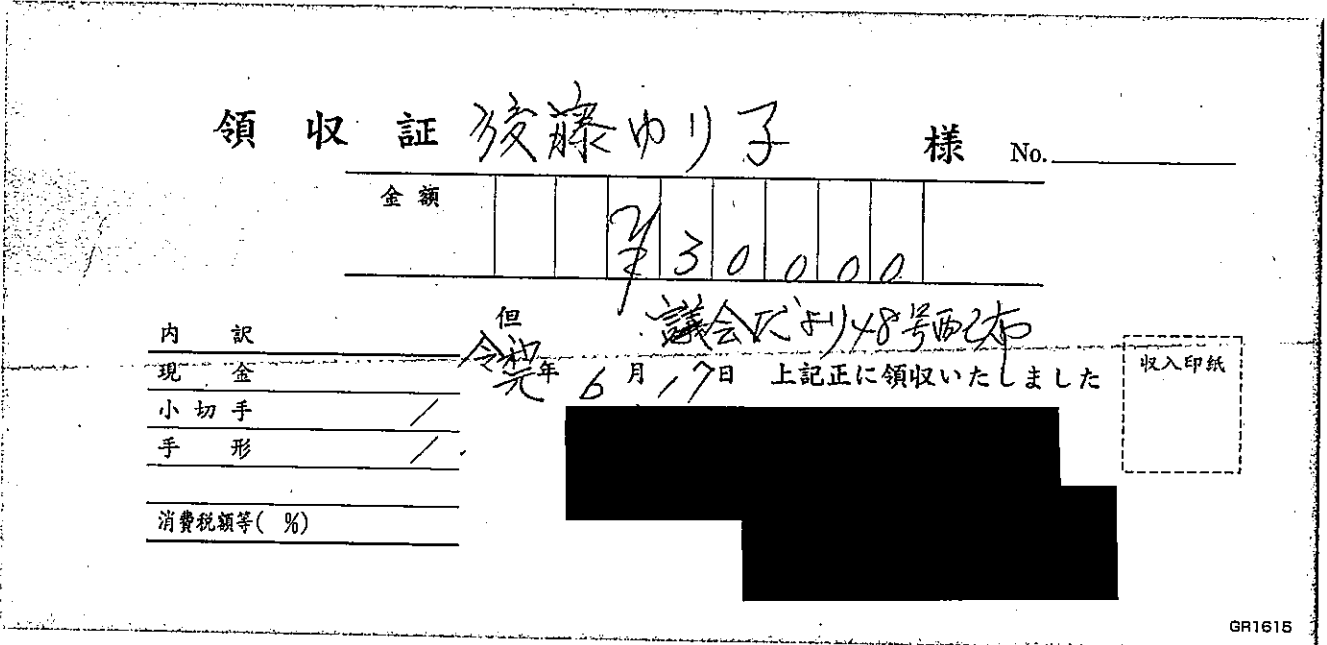 領収証 後藤ゆり子 様 No.
金額 ¥30000
但 議会だより48号配布
令和元年 6月17日 上記正に領収いたしました
内訳
現金
小切手 /
手形 /
消費税額等( %)
収入印紙
GR1615